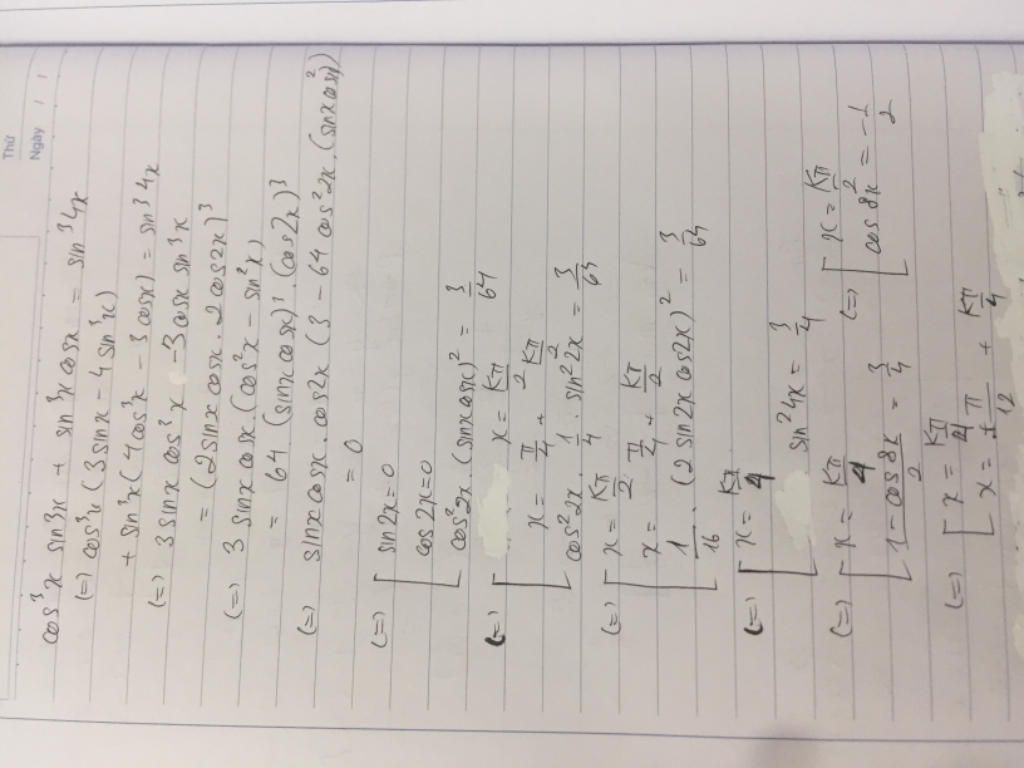 Thứ
Ngày / /
cos³x sin3x + sin³x cos3x = sin³4x
(=) cos³x (3sinx - 4sin³x)
+ sin³x (4cos³x - 3cosx) = sin³4x
(=) 3 sinx cos³x - 3 cosx sin³x
= (2sinx cosx . 2 cos2x)³
(=) 3 sinx cosx (cos²x - sin²x)
= 64 (sinx cosx)³ . (cos2x)³
(=) sinx cosx . cos2x (3 - 64 cos²2x . (sinx cosx)²)
= 0
(=) [ sin2x = 0
cos2x = 0
cos²2x . (sinx cosx)² = 3/64
(=) [ x = Kπ/2
x = π/4 + Kπ/2
cos²2x . 1/4 . sin²2x = 3/64
(=) [ x = Kπ/2
x = π/4 + Kπ/2
1/16 . (2 sin2x cos2x)² = 3/64
(=) [ x = Kπ/4
sin²4x = 3/4
(=) [ x = Kπ/4 (=) [ x = Kπ/2
1 - cos8x / 2 = 3/4 cos8x = -1/2
(=) [ x = Kπ/4
x = ± π/12 + Kπ/4